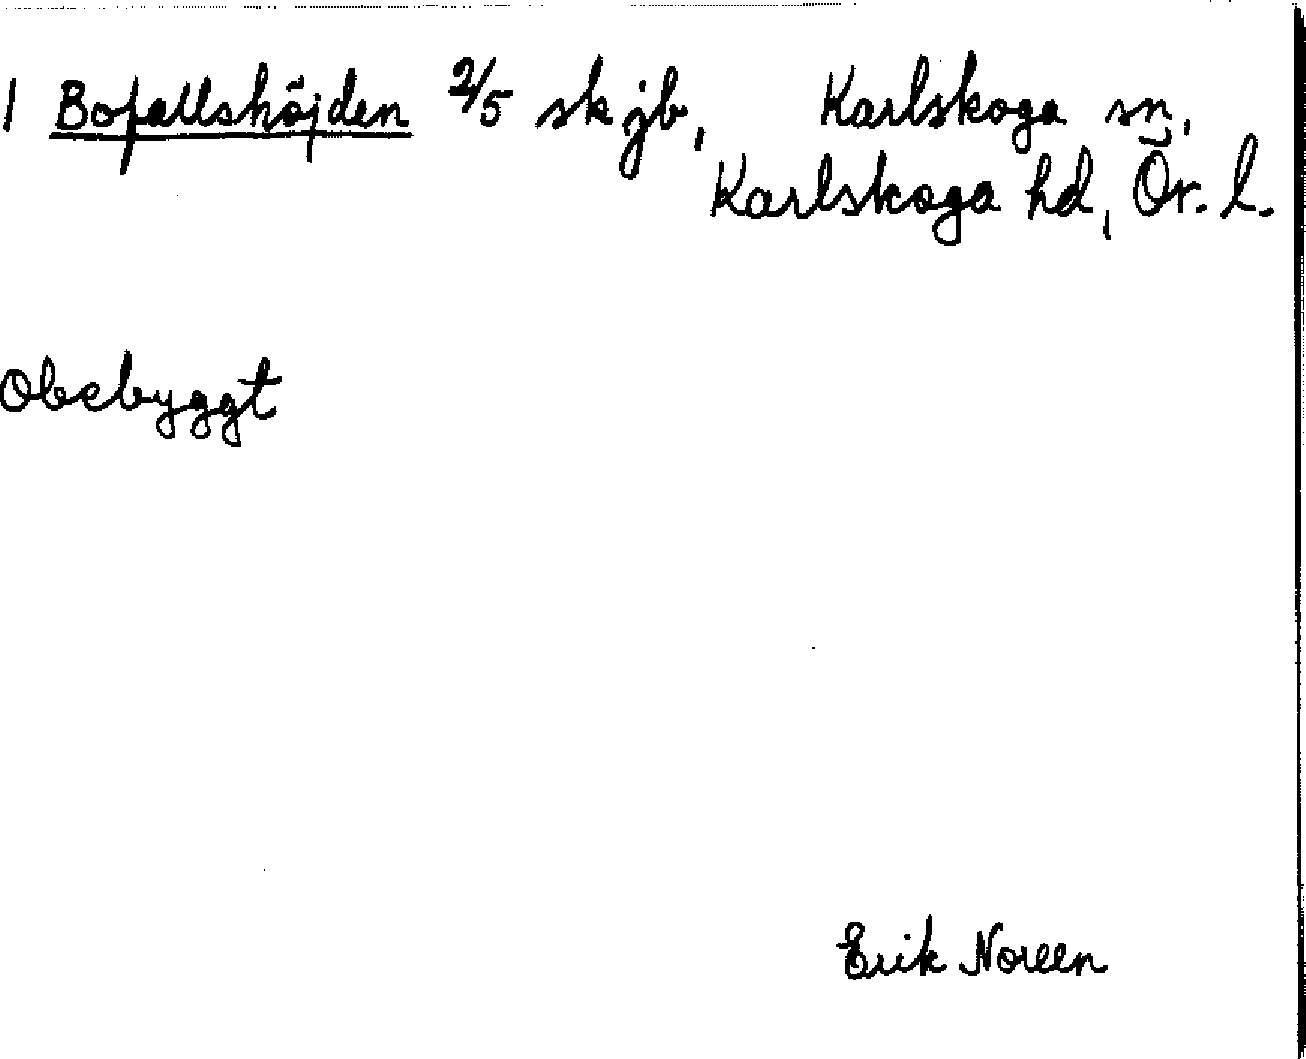 1 Bofallshöjden 2/5 sk jb, Karlskoga sn,
Karlskoga hd, Ör. l.
Obebyggt
Erik Noreen